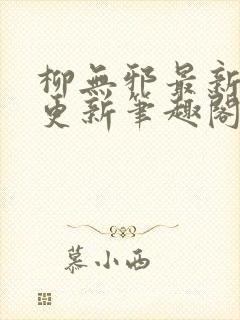 柳無邪最新
更新筆趣閣
慕小西